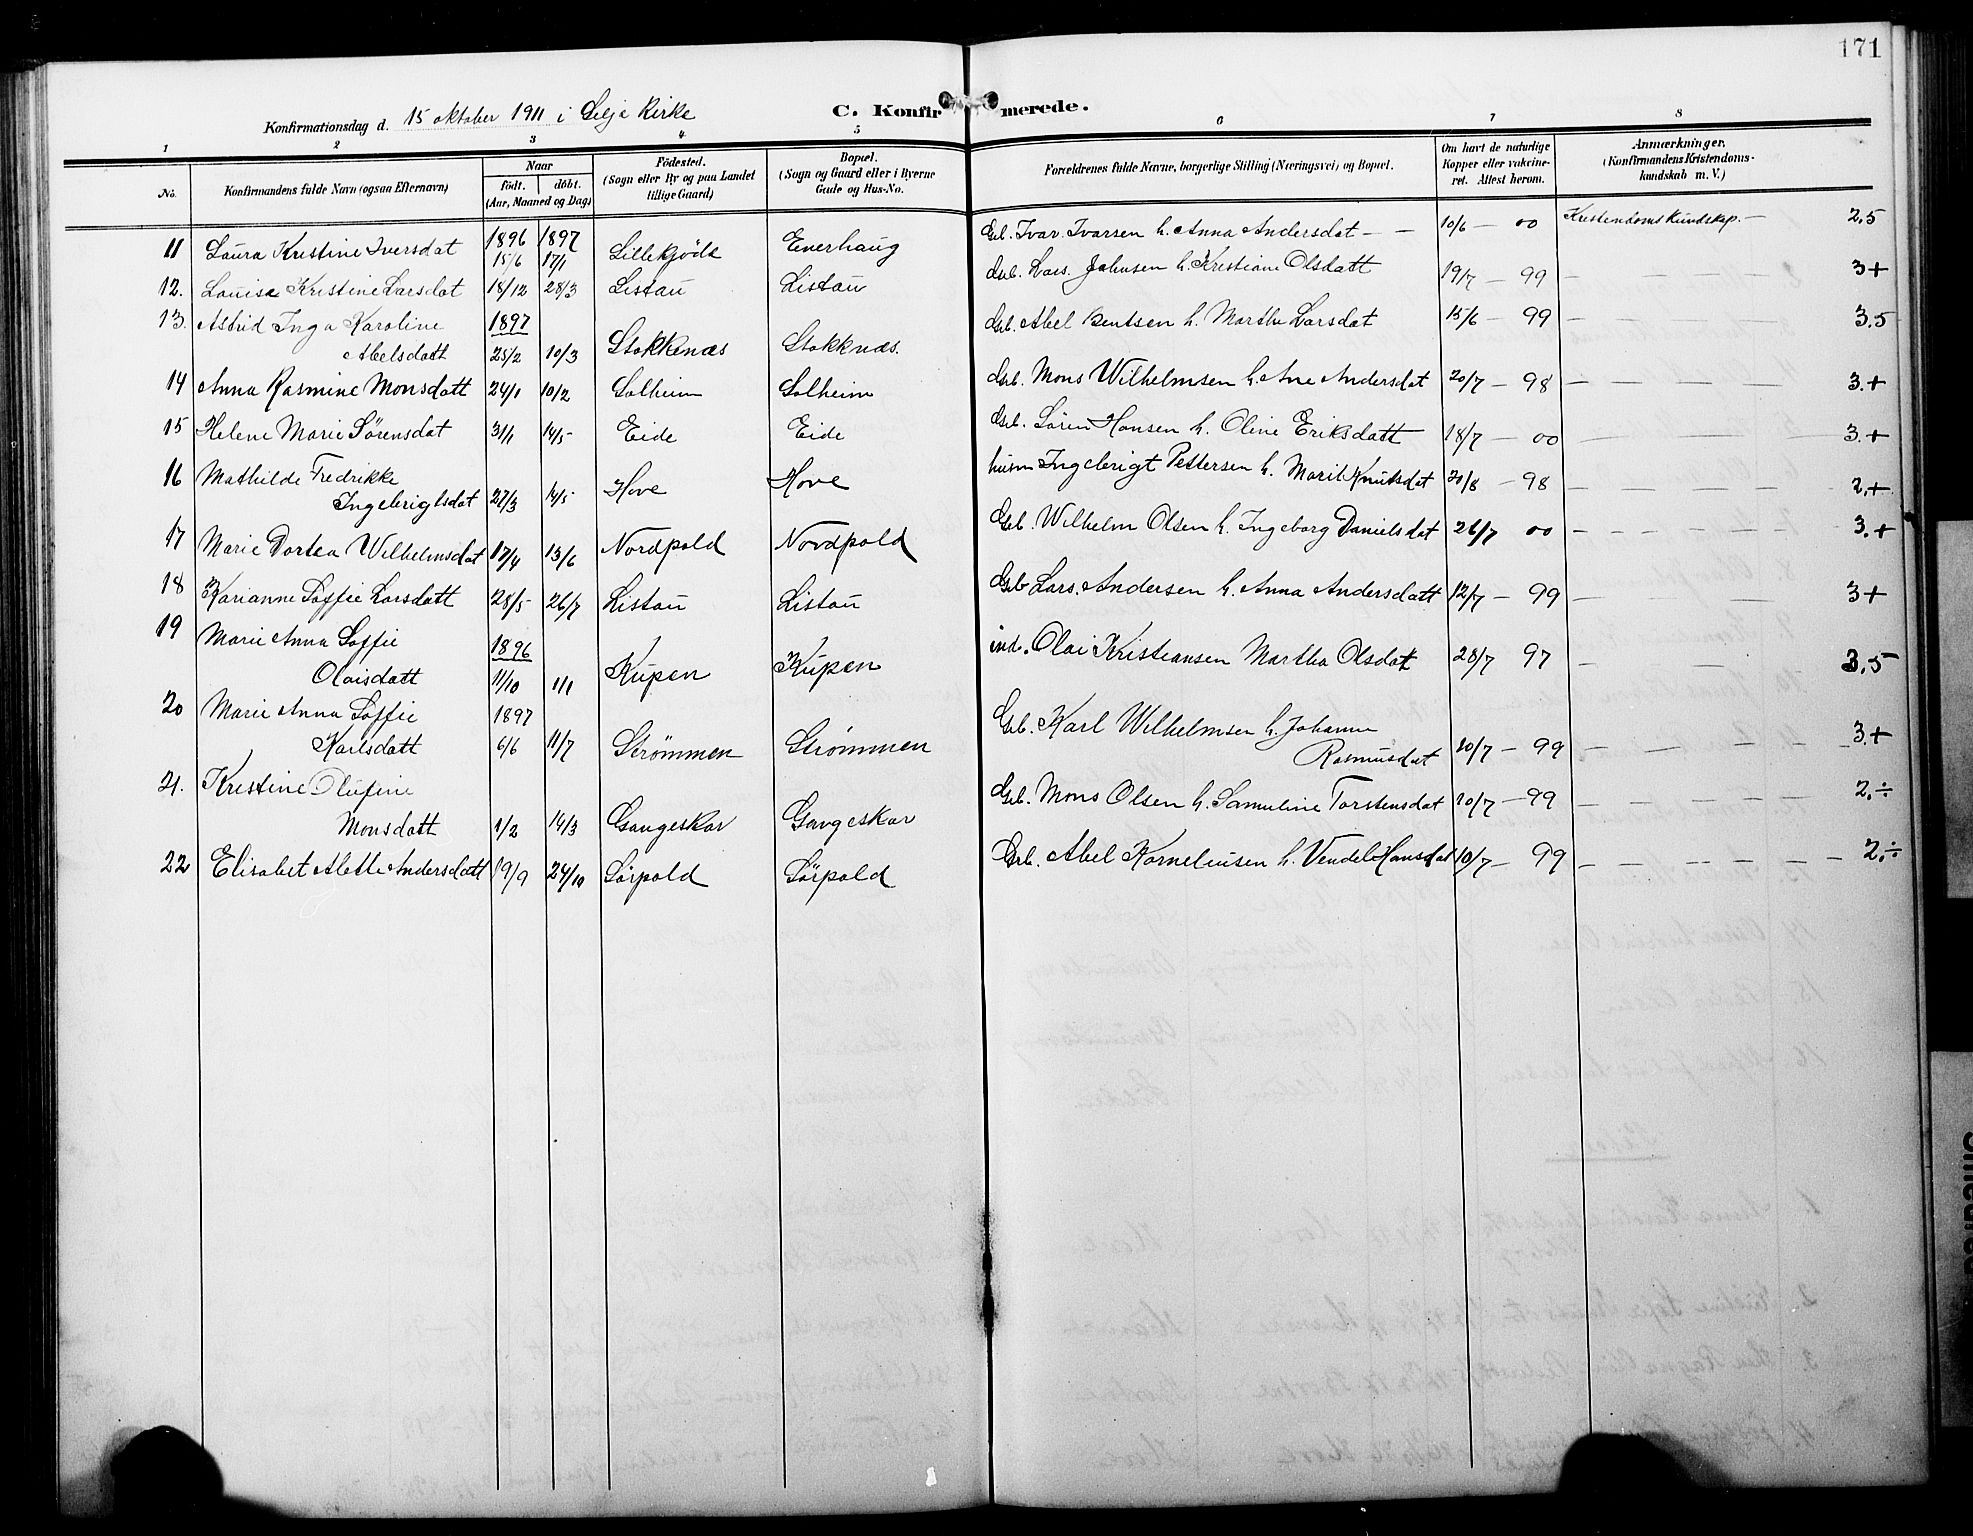 171
Konfirmationsdag d. 15 oktober 1911 i Selje Kirke
C. Konfirmerede.
1 2 3 4 5 6 7 8
No.
Konfirmandens fulde Navn (ogsaa Efternavn)
Naar
født. døbt.
(Aar, Maaned og Dag)
Födested.
(Sogn eller By og paa Landet
tillige Gaard)
Bopæl.
(Sogn og Gaard eller i Byerne
Gade og Hus-No.
Forældrenes fulde Navne, borgerlige Stilling (Næringsvei) og Bopæl.
Om havt de naturlige
Kopper eller vakcine-
ret. Attest herom.
Anmærkninger.
(Konfirmandens Kristendoms-
kundskab m. V.)
1896 1897
11 Laura Kristine Iversdat 15/6 17/1 Lillekjöde Enerhaug Grb. Ivar Ivarsen h. Anna Andersdat — — 10/6 — 00 Kristendomskundskap. — 2,5
12. Louise Kristine Larsdat 18/12 28/3 Listau Listau Grb. Lars Johnsen h. Kristiane Olsdatt 19/7 — 99 — — — 3+
13. Astrid Inga Karoline 1897
Abelsdatt 25/2 10/3 Stokkenæs Stokknæs. Grb. Abel Bentsen h. Marthe Larsdat 15/6 — 99 — — — 3.5
14 Anna Rasmine Monsdatt 24/1 10/2 Solheim Solheim Grb. Mons Wilhelmsen h. Ane Andersdat 20/7 — 98 — — — — 3.+
15 Helene Marie Sörensdat 31/1 14/5 Eide Eide Grb. Sören Hansen h. Oline Eriksdatt 18/7 — 00 — — — — 3.+
16 Mathilde Fredrikke
Ingebrigtsdat 27/3 14/5 Hove Hove husm Ingebrigt Pettersen h. Marit Knutsdat 20/8 — 98 — — — — 2.+
17 Marie Dortea Wilhelmsdat 17/4 13/6 Nordpold Nordpold Grb. Wilhelm Olsen h. Ingeborg Danielsdat 26/7 00 — — — — 3.+
18 Karianne Soffie Larsdatt 28/5 26/7 Listau Listau Grb Lars Andersen h. Anna Andersdatt 12/7 — 99 — — — 3+
19 Marie Anna Soffie 1896
Olaisdatt 11/10 1/1 Kupen Kupen ind. Olai Kristiansen Martha Olsdat 28/7 97 — — 3,5
20 Marie Anna Soffie 1897
Karlsdatt 6/6 11/7 Strömmen Strömmen Grb. Karl Wilhelmsen h. Johanne
Rasmusdat 10/7 — 99 — — — — 3.+
21. Kristine Olufine
Monsdatt 1/2 14/3 Gangeskar Gangeskar Grb. Mons Olsen h. Samuline Torstensdat 10/7 — 99 — — — — 2,÷
22 Elisabet Alette Andersdatt 19/9 24/10 Sörpold Sörpold Grb. Abel Korneliusen h. Vendel Hansdat 10/7 — 99 — — — — 2,÷